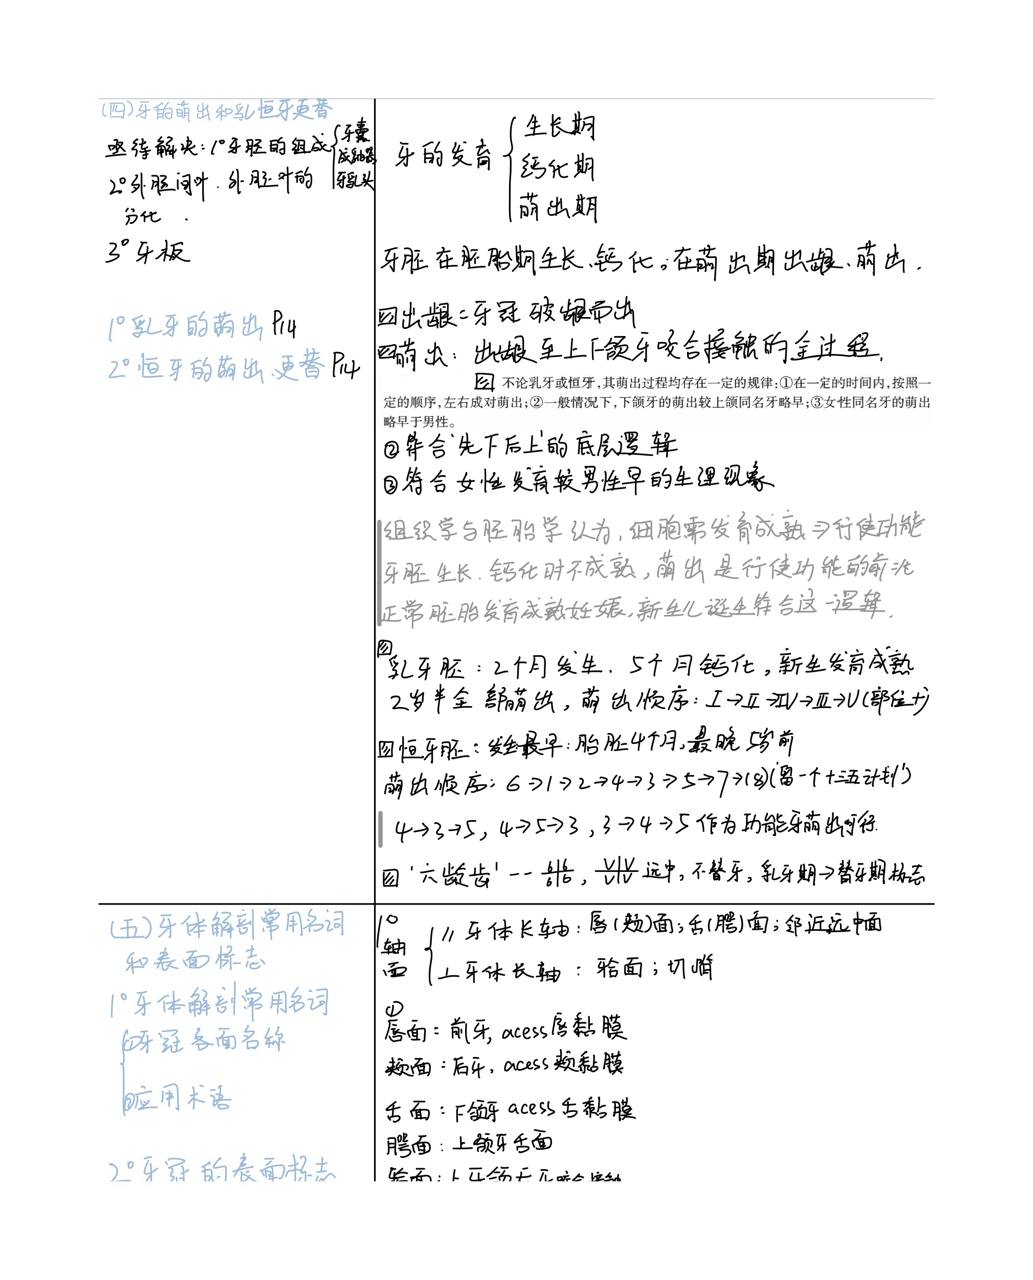 (四)牙的萌出和乳恒牙更替
亟待解决:1°牙胚的组成
牙囊
成釉器
牙乳头
2°外胚间叶.外胚叶的
分化.
3°牙板
1°乳牙的萌出 P14
2°恒牙的萌出、更替 P14
牙的发育
生长期
钙化期
萌出期
牙胚在胚胎期生长、钙化,在萌出期出龈、萌出.
出龈=牙冠破龈而出
萌出:出龈至上下颌牙咬合接触的全过程.
不论乳牙或恒牙,其萌出过程均存在一定的规律:①在一定的时间内,按照一
定的顺序,左右成对萌出;②一般情况下,下颌牙的萌出较上颌同名牙略早;③女性同名牙的萌出
略早于男性。
②符合'先下后上'的底层逻辑
③符合女性发育较男性早的生理现象
组织学与胚胎学认为,细胞需发育成熟⇒行使功能
牙胚生长.钙化时不成熟,萌出是行使功能的前兆
正常胚胎发育成熟妊娠,新生儿诞生符合这一逻辑.
乳牙胚:2个月发生.5个月钙化,新生发育成熟
2岁半全部萌出,萌出顺序:Ⅰ→Ⅱ→Ⅳ→Ⅲ→Ⅴ(部位十)
恒牙胚:发生最早:胎胚4个月,最晚5岁前
萌出顺序:6→1→2→4→3→5→7→(8)('留一个十三五计划')
4→3→5,4→5→3,3→4→5作为功能牙萌出可行
'六龄齿'--6|6 6|6,V|V V|V远中,不替牙,乳牙期→替牙期标志
(五)牙体解剖常用名词
和表面标志
1°牙体解剖常用名词
①牙冠各面名称
②应用术语
2°牙冠的表面标志
1°
轴面
//牙体长轴:唇(颊)面;舌(腭)面;邻近远中面
⊥牙体长轴:𬌗面;切嵴
①
唇面:前牙,acess唇黏膜
颊面:后牙,acess颊黏膜
舌面:下颌牙acess舌黏膜
腭面:上颌牙舌面